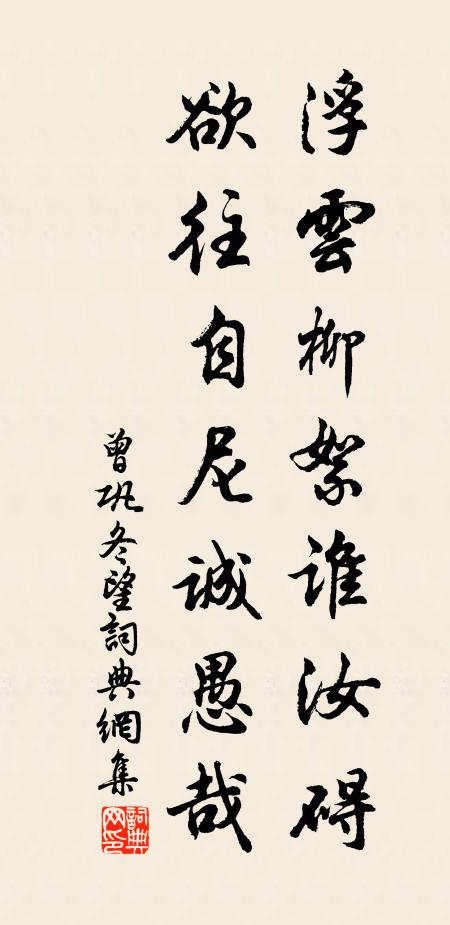 浮雲柳絮誰汝礙
欲往自尼誠愚哉
曾巩冬望詞典網集
詞典网印